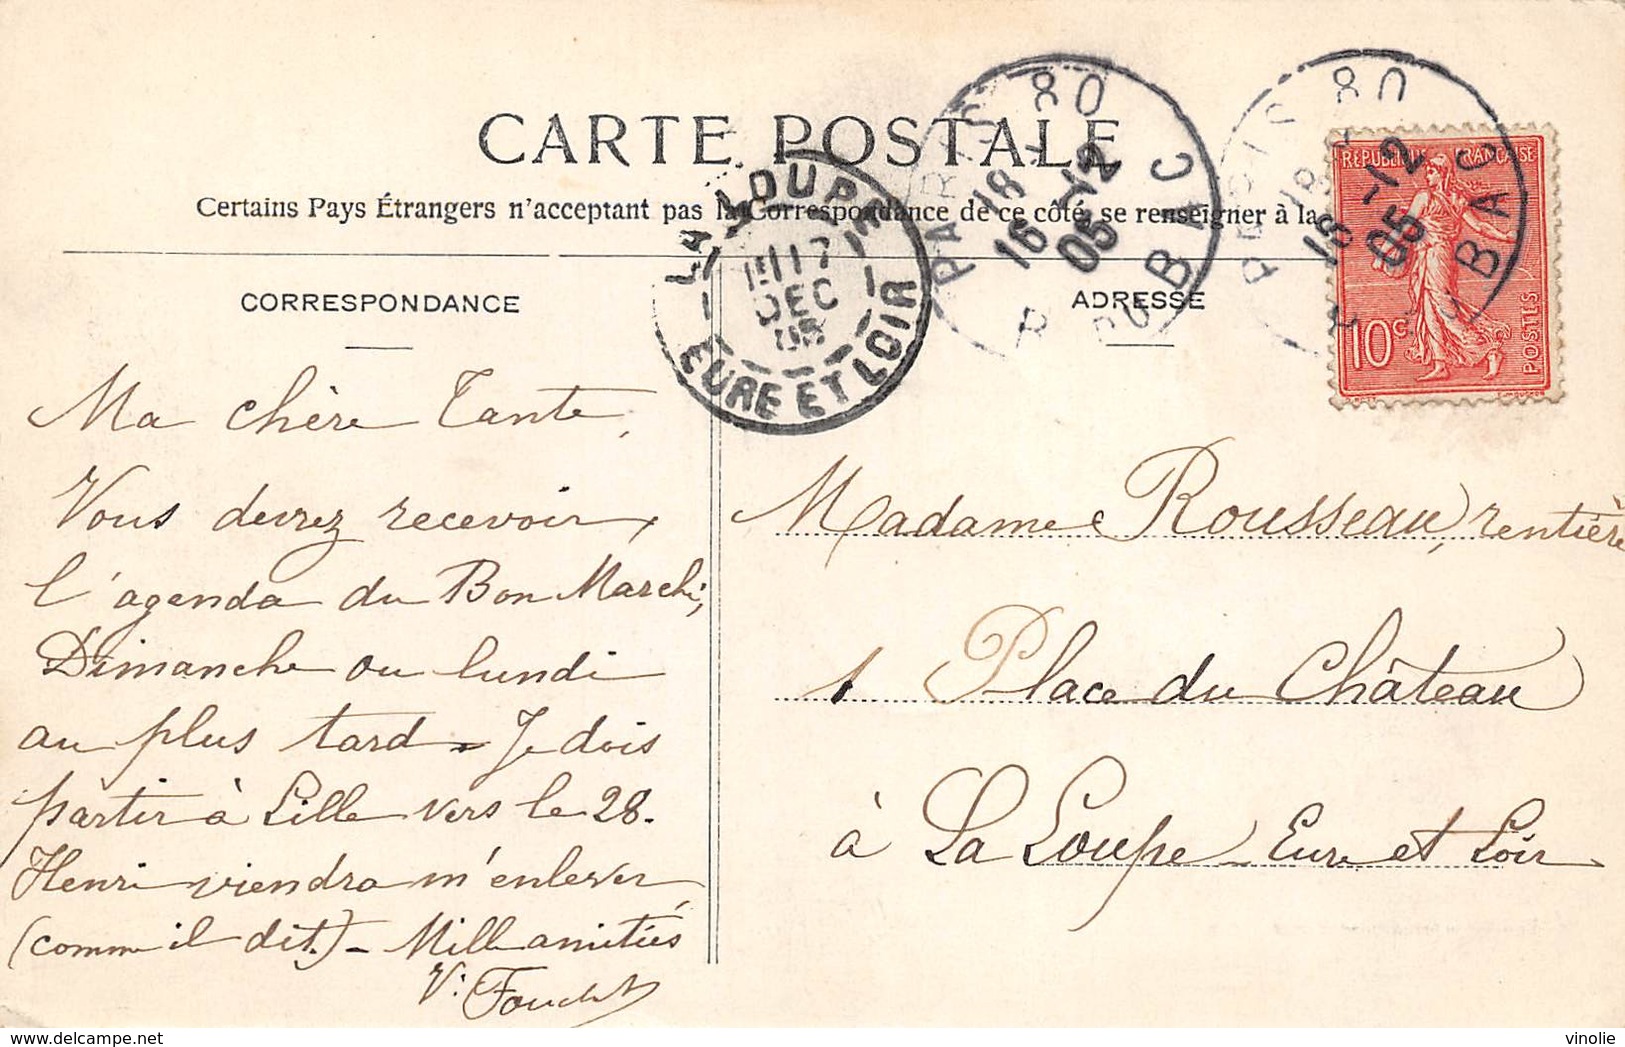 CARTE POSTALE
Certains Pays Étrangers n'acceptant pas la Correspondance de ce côté, se renseigner à la
CORRESPONDANCE
Ma chère Tante,
Vous devrez recevoir
l'agenda du Bon Marché,
Dimanche ou lundi
au plus tard. Je dois
partir à Lille vers le 28.
Henri viendra m'enlever
(comme il dit.) - Mille amitiés
V.
ADRESSE
Madame Rousseau, rentière
1 Place du Château
à La Loupe Eure et Loir
LA LOUPE
17
DEC
05
EURE ET LOIR
PARIS 80
18
16 -12
05
R. DU BAC
PARIS 80
18
16 -12
05
DU BAC
REPUBLIQUE FRANCAISE
10 c.
POSTES
vinolie